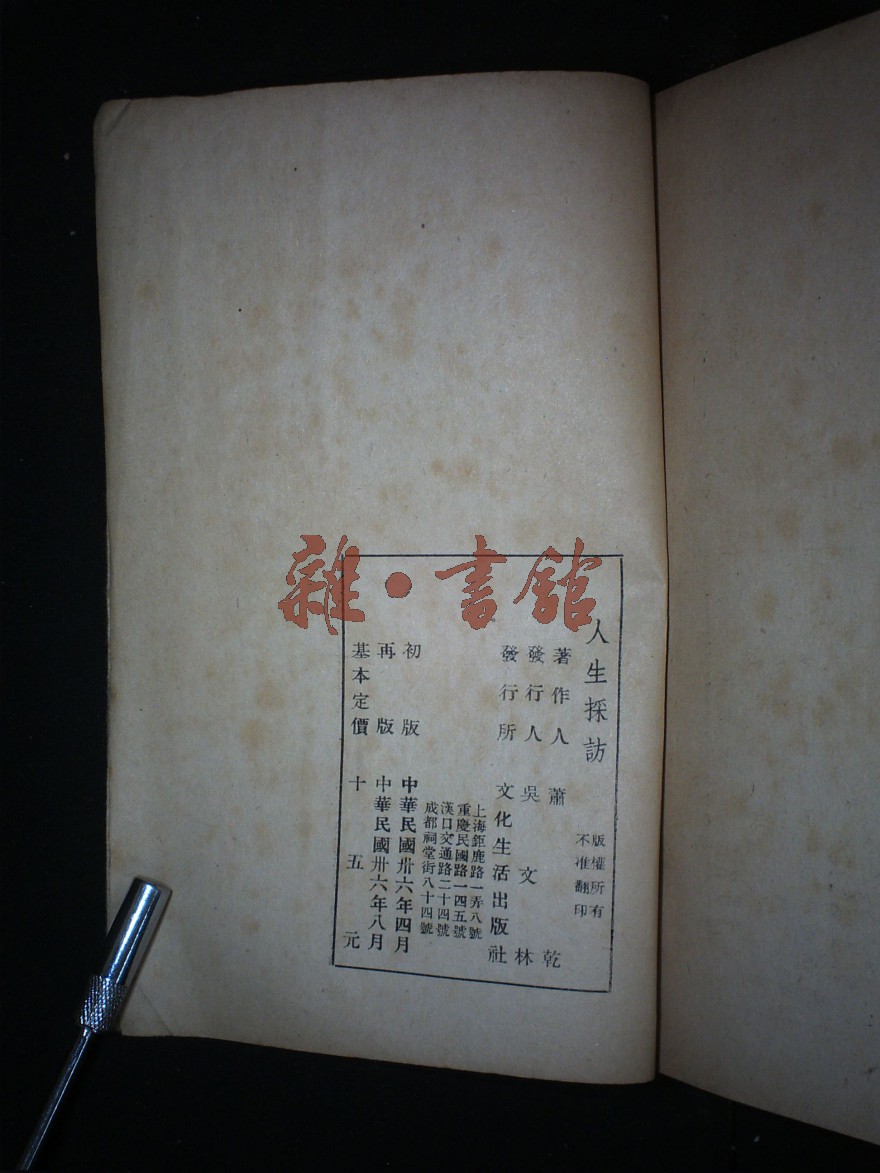 雜·書館
人生採訪
版權所有
不准翻印
著作人 蕭乾
發行人 吳文林
發行所 文化生活出版社
上海鉅鹿路一弄八號
重慶民國路一四五號
漢口交通路二十四號
成都祠堂街八十四號
初版 中華民國卅六年四月
再版 中華民國卅六年八月
基本定價 十五元